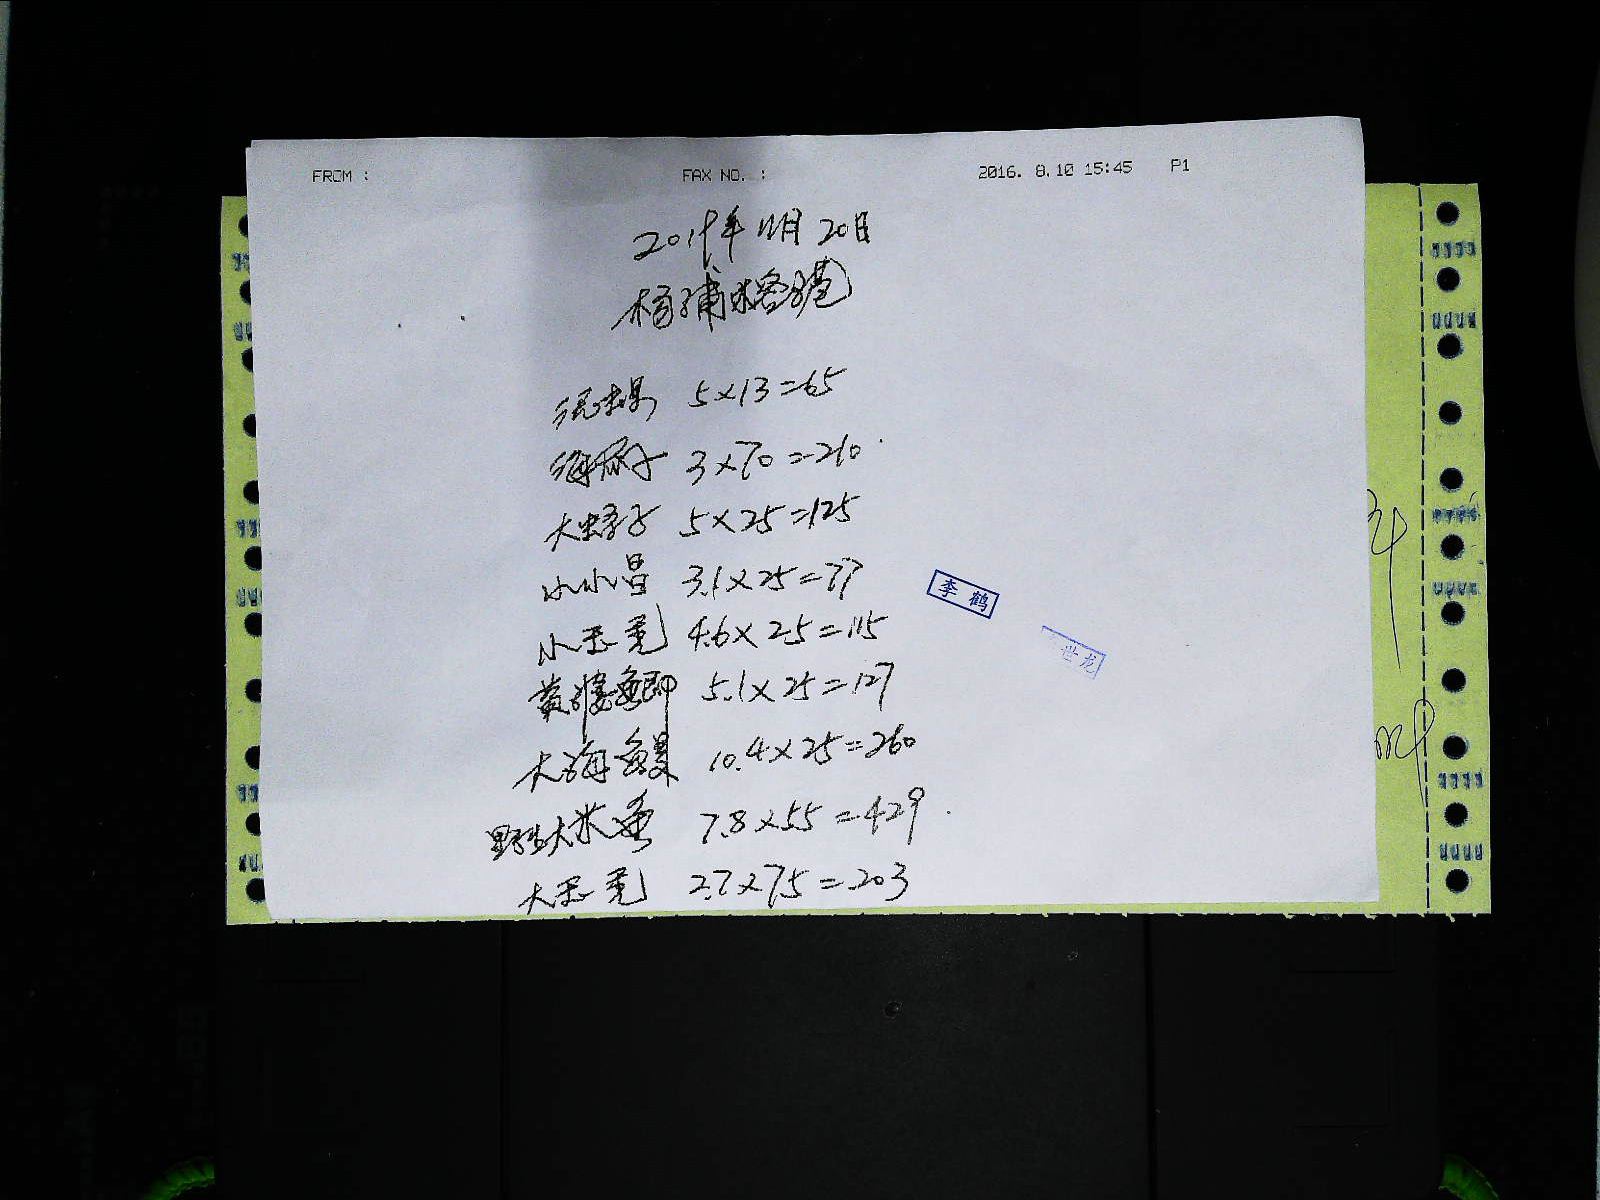 FROM :
FAX NO. :
2016. 8.10 15:45
P1
2019年11月20日
杨浦米格苑
5×13=65
海瓜子 3×70=210
大蛏子 5×25=125
小小昌 3.1×25=77
小玉秃 4.6×25=115
黄婆鱼即 5.1×25=127
大海鳗 10.4×25=260
野生大米鱼 7.8×55=429
大玉秃 2.7×75=203
李鹤
世龙